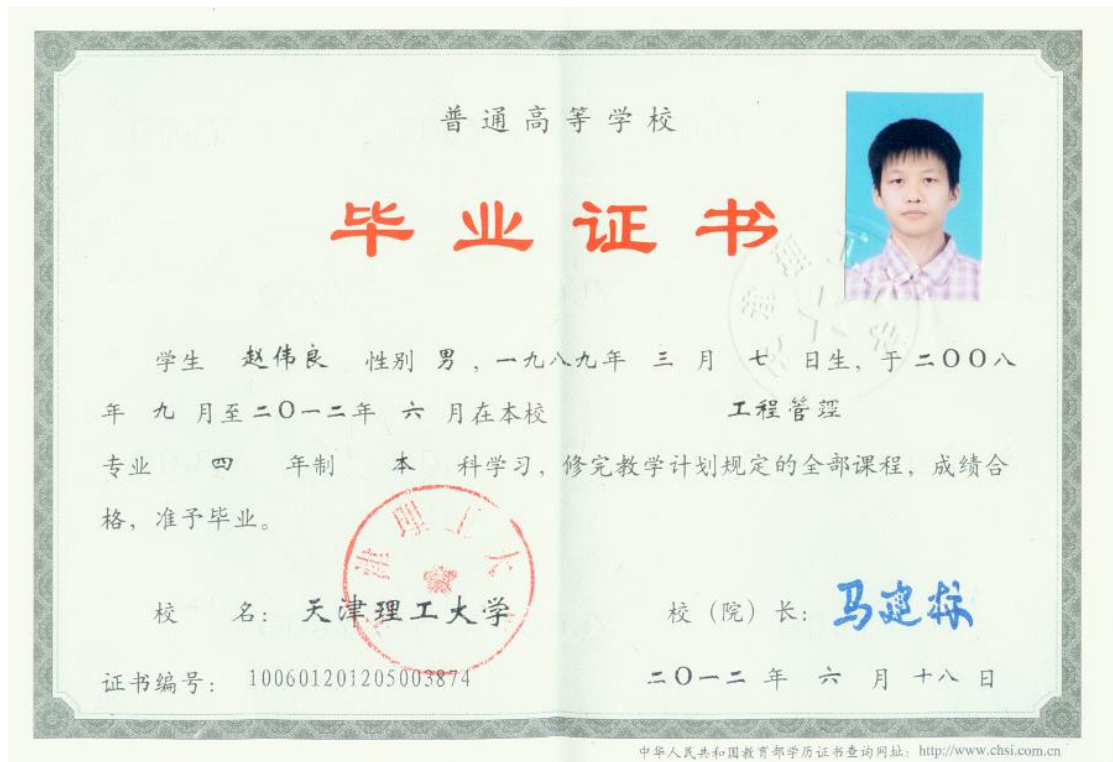 普通高等学校
毕业证书
学生 赵伟良 性别 男 ，一九八九年 三 月 七 日生，于 二〇〇八
年 九 月至 二〇一二年 六 月在本校 工程管理
专业 四 年制 本 科学习，修完教学计划规定的全部课程，成绩合
格，准予毕业。
校 名： 天津理工大学
校（院）长： 马建标
证书编号： 100601201205003874
二〇一二 年 六 月 十八 日
中华人民共和国教育部学历证书查询网址：http://www.chsi.com.cn